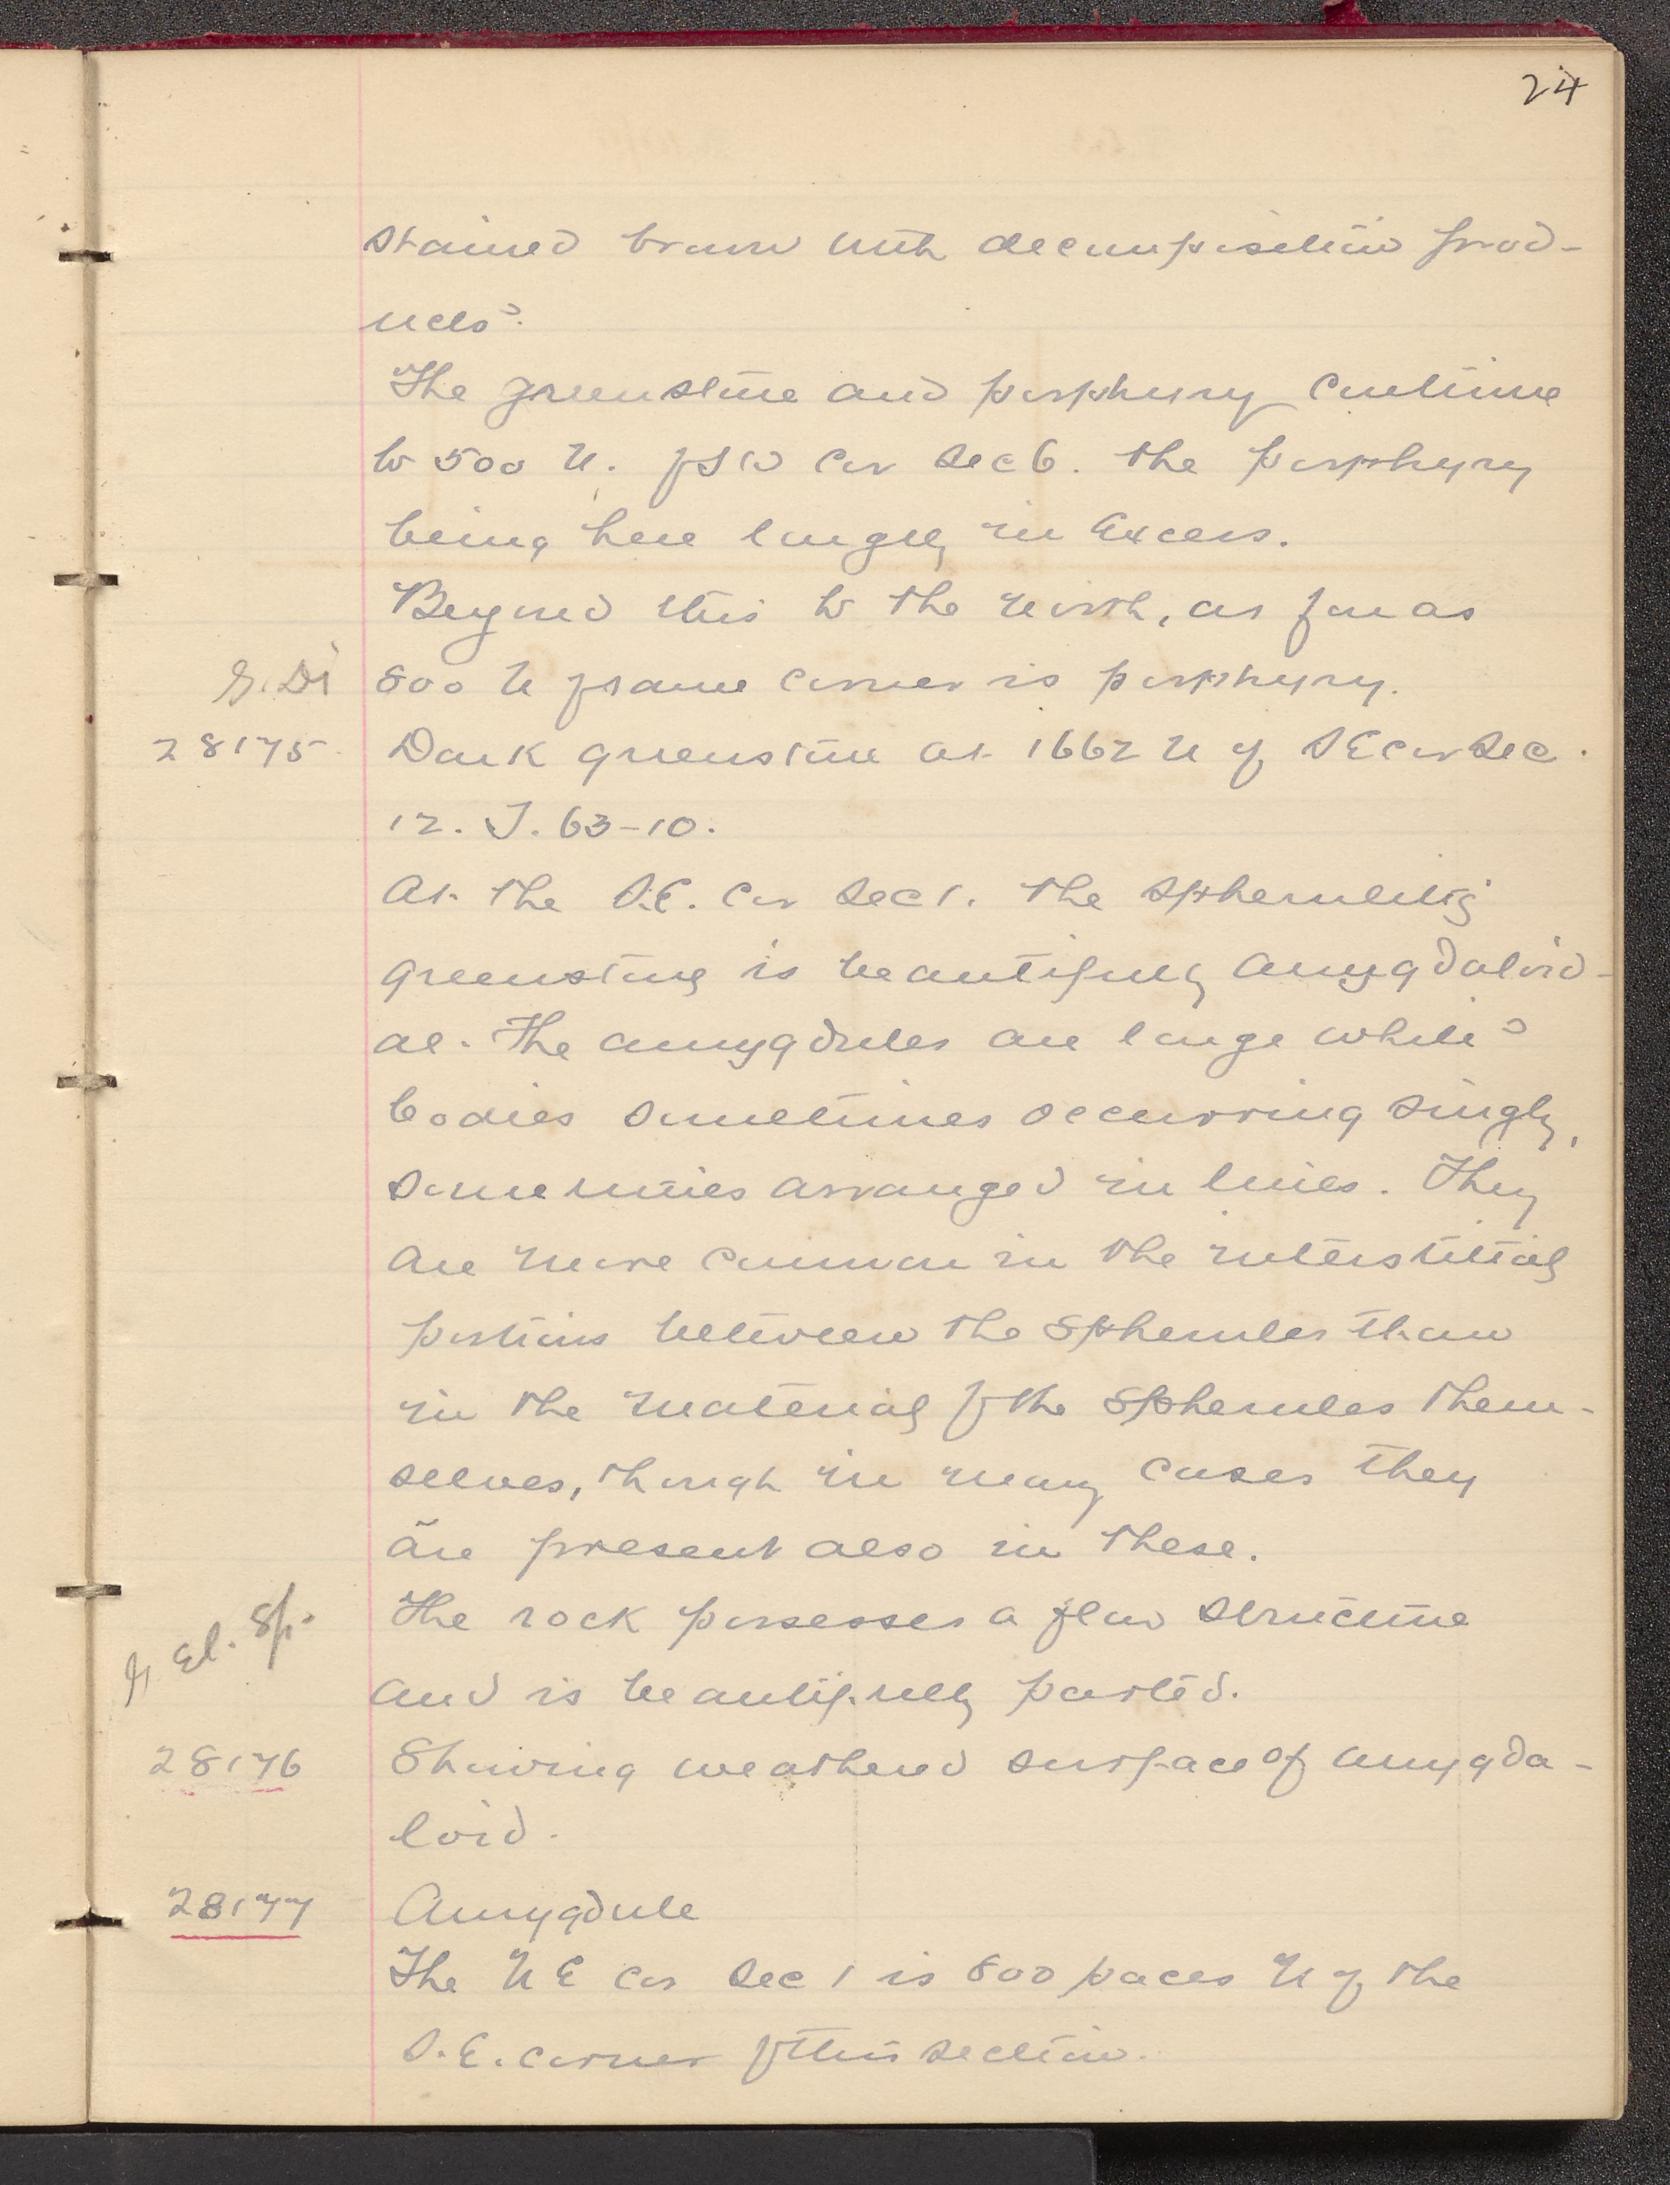 24
stained brown with decomposition prod-
ucts.
The greenstone and porphyry continue
to 500 N. of SW Cor Sec 6. the porphyry
being here largely in excess.
Beyond this to the north, as far as
G. Di 800 N of same corner is porphyry.
28175 Dark greenstone at 1662 N of SE cor Sec.
12. T. 63-10.
At the S.E. Cor Sec 1. the spherulitic
greenstone is beautifully amygdaloid-
al. The amygdules are large white
bodies sometimes occurring singly,
sometimes arranged in lines. They
are more common in the interstitial
portions between the spherules than
in the material of the spherules them-
selves, though in many cases they
are present also in these.
The rock possesses a flow structure
G. El. Sp. and is beautifully parted.
28176 Showing weathered surface of amygda-
loid.
28177 Amygdule
The NE cor Sec 1 is 800 paces N of the
S.E. corner of this section.